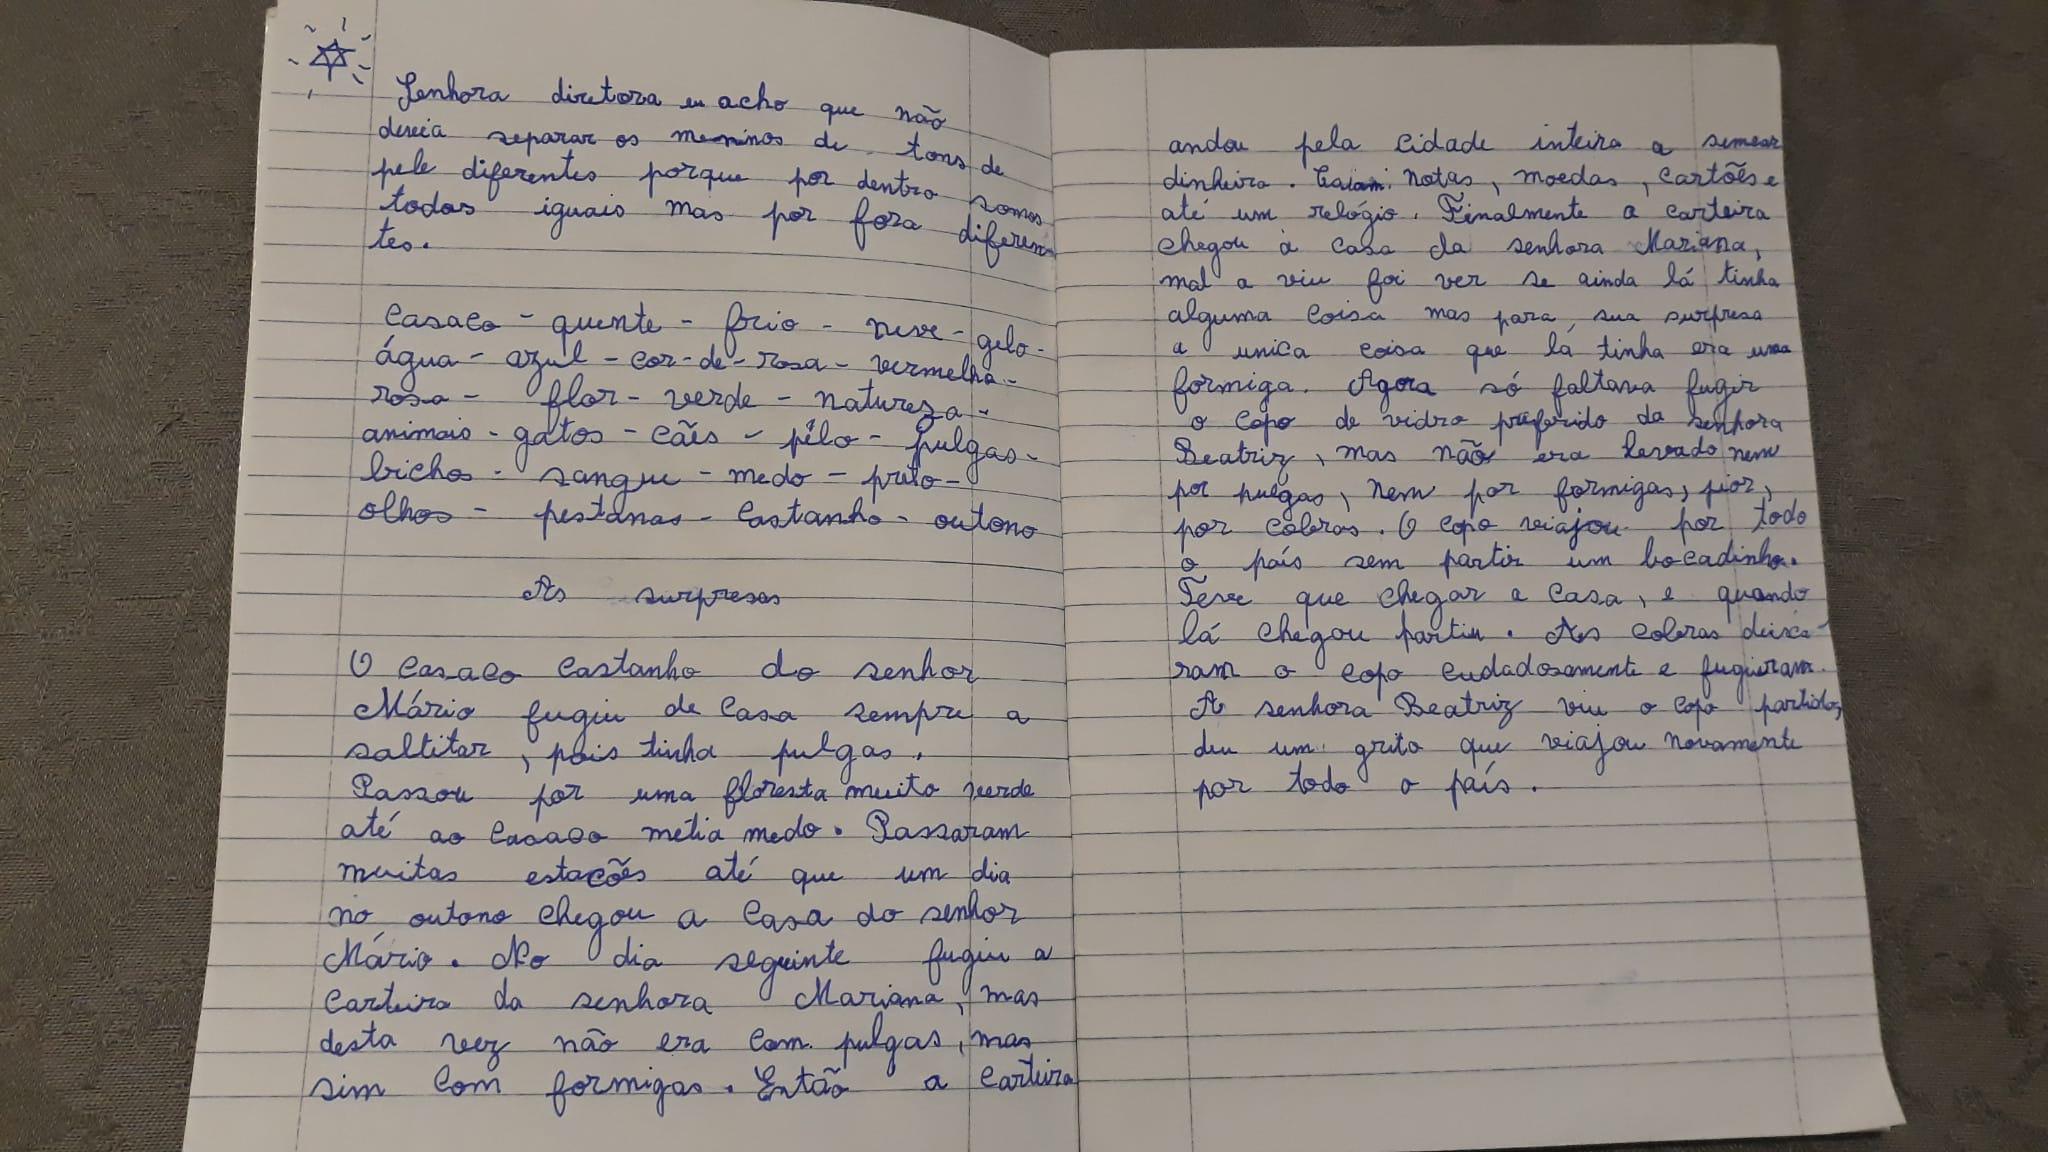 Senhora diretora eu acho que não
deveia separar os meninos de tons de
pele diferentes porque por dentro somos
todos iguais mas por fora diferen
tes.
casaco - quente - frio - neve - gelo -
água - azul - cor-de-rosa - vermelho -
rosa - flor - verde - natureza -
animais - gatos - cães - pêlo - pulgas -
bichos - sangue - medo - preto -
olhos - pestanas - castanho - outono
As surpresas
O casaco castanho do senhor
Mário fugiu de casa sempre a
saltitar, pois tinha pulgas.
Passou por uma floresta muito verde
até ao casaco metia medo. Passaram
muitas estacões até que um dia
no outono chegou a casa do senhor
Mário. No dia seguinte fugiu a
carteira da senhora Mariana, mas
desta vez não era com pulgas, mas
sim com formigas. Então a carteira
andou pela cidade inteira a semear
dinheiro. Caiam notas, moedas, cartões e
até um relógio. Finalmente a carteira
chegou à casa da senhora Mariana,
mal a viu foi ver se ainda lá tinha
alguma coisa mas para sua surpresa
a unica coisa que lá tinha era uma
formiga. Agora só faltava fugir
o copo de vidro preferido da senhora
Beatriz, mas não era levado nem
por pulgas, nem por formigas, pior,
por cobras. O copo viajou por todo
o país sem partir um bocadinho.
Teve que chegar a casa, e quando
lá chegou partiu. As cobras deixa-
ram o copo cudadosamente e fugiram.
A senhora Beatriz viu o copo partido,
deu um grito que viajou novamente
por todo o país.